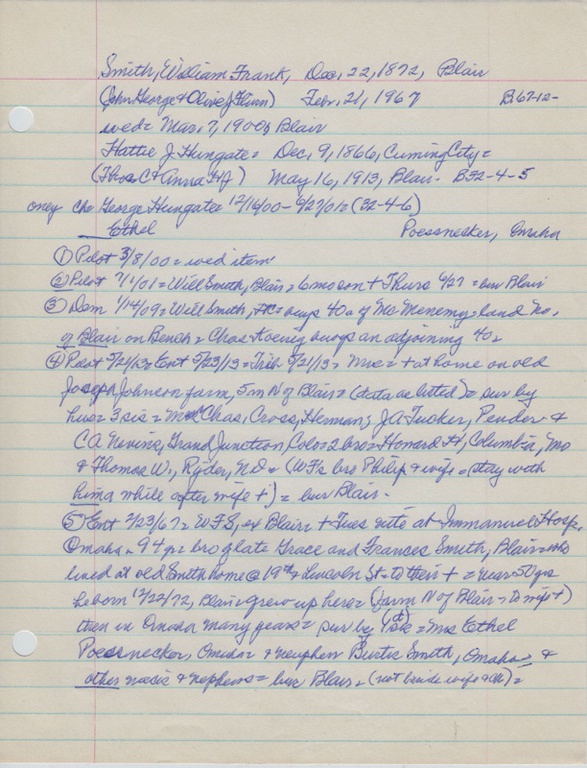 Smith, William Frank, Dec. 22, 1872, Blair
(John George & Olive J Flinn) Feb. 21, 1967 B67-12-
wed = Mar. 7, 1900, Blair
Hattie J. Hungate = Dec. 9, 1866, Cuming City =
(Thos C & Anna HJ) May 16, 1913, Blair - B32-4-5
only ch = George Hungate = 12/16/00 - 6/27/01 = (32-4-6)
Ethel Poessnecker, Omaha
① Pilot 3/8/00 = wed item
② Pilot 7/1/01 = Will Smith, Blair = 6 mo son + Thurs 6/27 = bur Blair
③ Dem 1/14/09 = Will Smith, buys 40 a of McMenemy = land No.
of Blair on Bench = Chas Koenig buys an adjoining 40 =
④ Ent 5/23/13 = Trib 5/21/13 = Mrs = + at home on old
Joseph Johnson farm, 5 m N of Blair = (data as listed) = sur by
hus = 3 sis = Chas. Cross, Herman; J.A. Tucker, Pender &
C A Nevins, Grand Junction, Colo = 2 bro = Howard H, Columbia, Mo
& Thomas W., Ryder, N.D = (WF's bro Philip & wife = stay with
him a while after wife +) = bur Blair -
⑤ Ent 2/23/67 = WFS, ex Blair = + Tues nite at Immanuel Hosp,
Omaha = 94 yr = bro of late Grace and Frances Smith, Blair = who
lived at old Smith home @ 19th & Lincoln St = to their + = near 50 yrs
he born 12/22/72, Blair = grew up here = (farm N of Blair = to wife +)
then in Omaha many years = sur by 1 Mrs Ethel
Poessnecker, Omaha = & nephew Burtis Smith, Omaha = &
other niecs & nephews = bur Blair = (not beside wife & ch) =